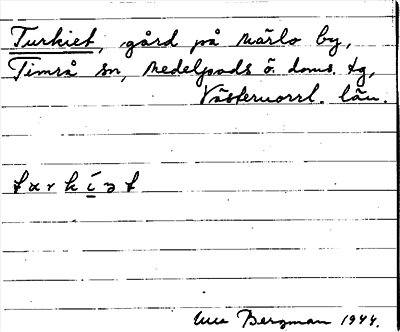 Turkiet, gård på Märlo by,
Timrå sn, Medelpads ö. doms. tg,
Västernorrl. län.
Bergman 1944.